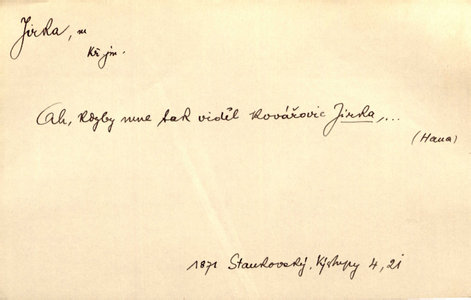 Jirka, m
Kř. jm.
Ah, kdyby mne tak viděl Kovářovic Jirka,...
(Hana)
1871 Stankovský, Výstupy 4, 21